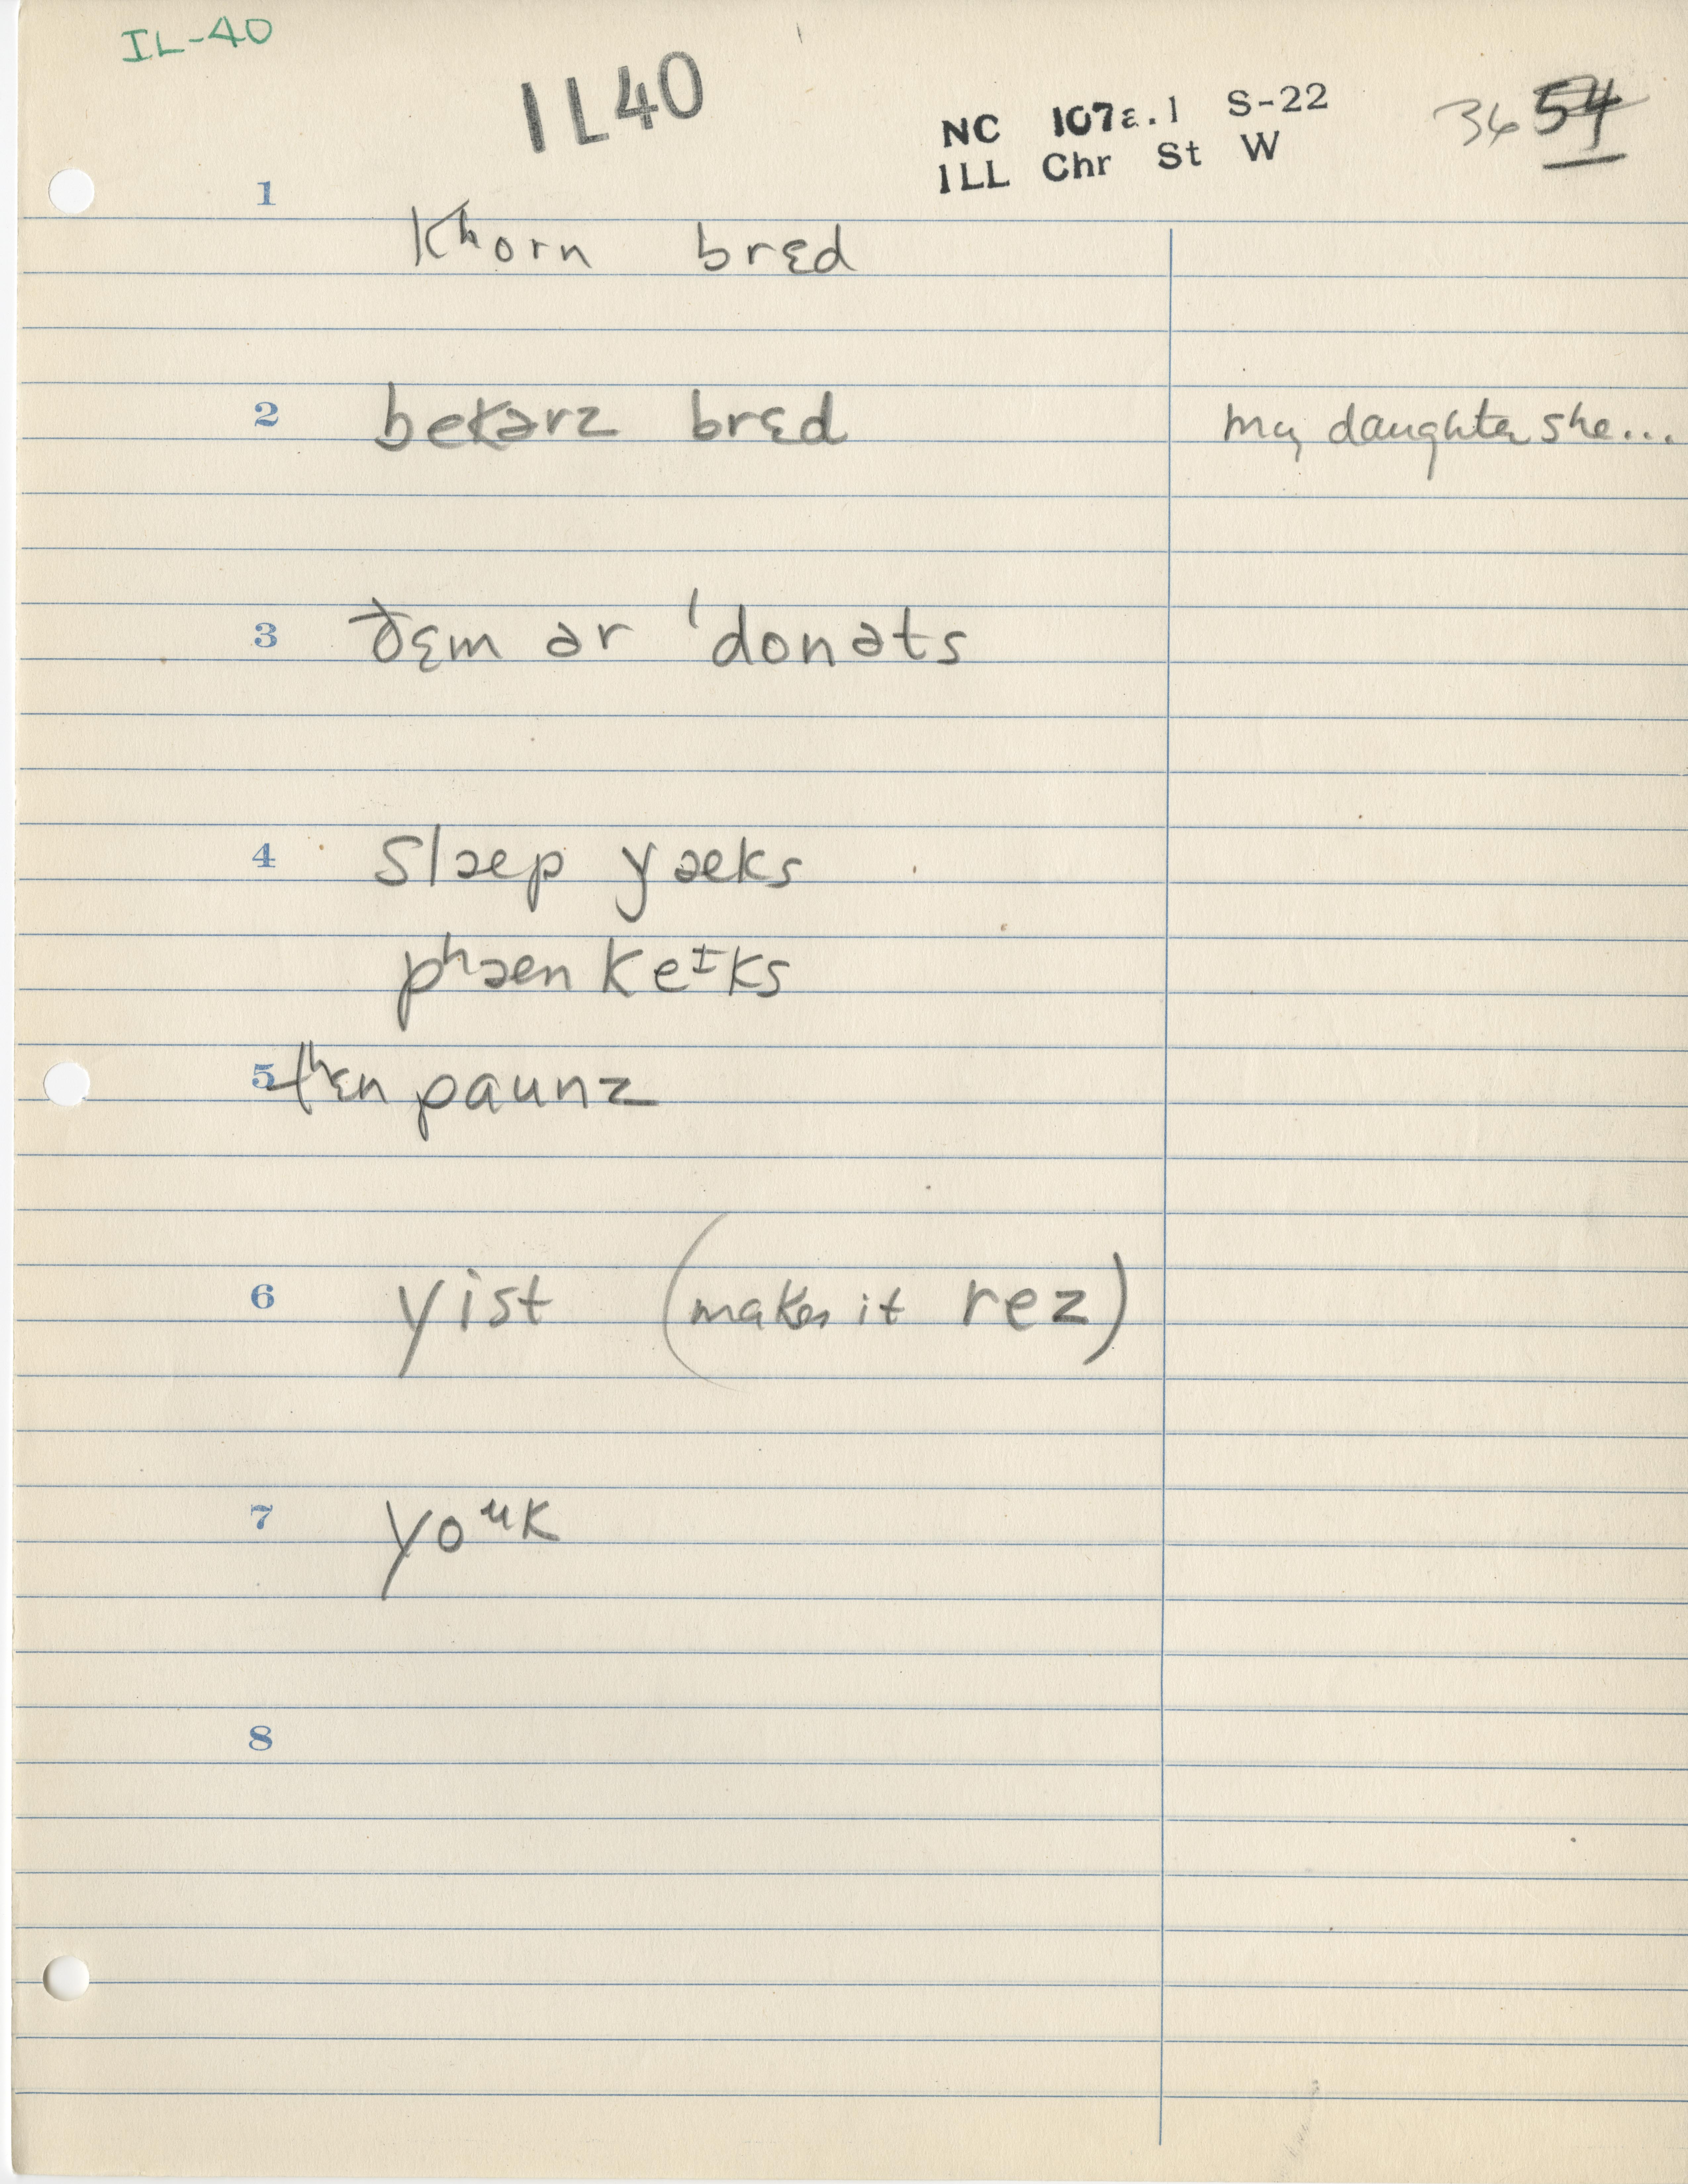 IL-40
IL40
NC 107a.1 S-22
ILL Chr St W
36 54
1
kʰorn brɛd
2 bekərz brɛd my daughter she...
3 ðɛm ər 'donəts
4 slæp yæks
pʰænkeᶦks
5 tʰɛn paunz
6 yist (makes it rez)
7 yoᵘk
8